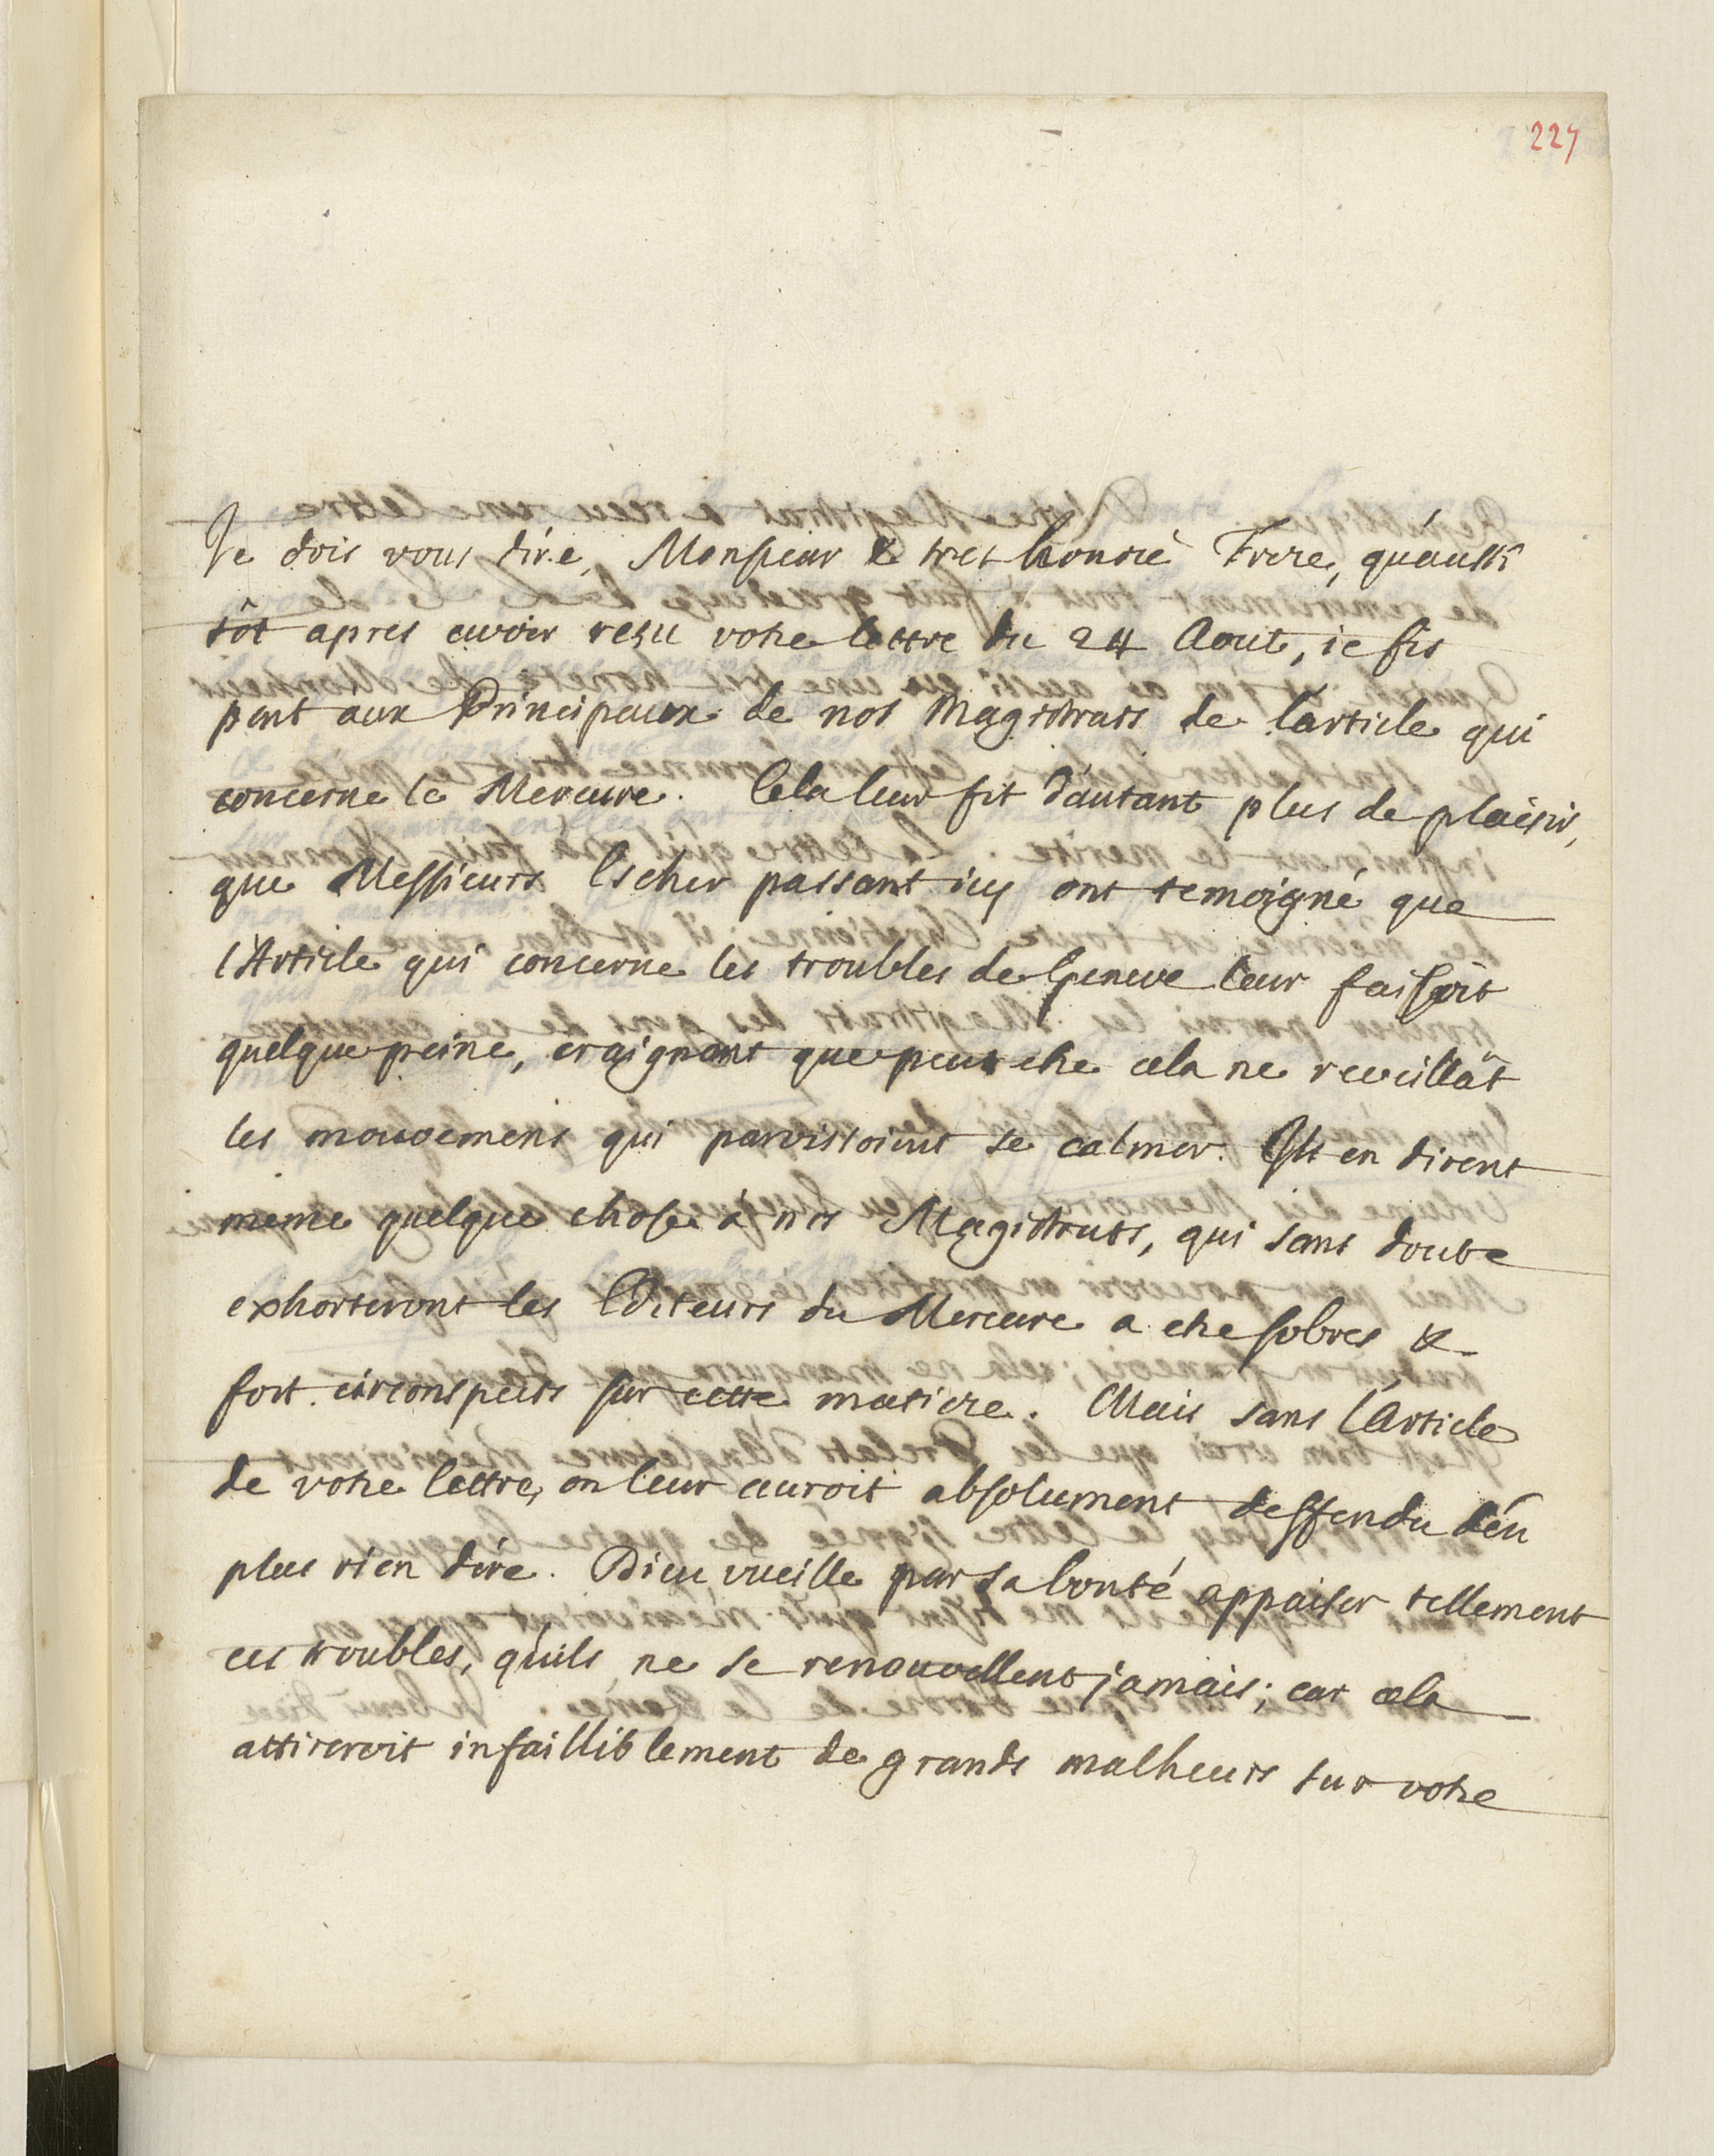 227
Je dois vous dire, Monsieur & tres honoré Frere, qu'aussi
tôt apres avoir reçu votre lettre du 24 Aout, je fis
part aux Principaux de nos Magistrats de l'article qui
concerne le Mercure. Cela leur fit d'autant plus de plaisir,
que Messieurs Escher passant icy ont temoigné que
l'Article qui concerne les troubles de Geneve leur faisoit
quelque peine, craignant que peut etre cela ne reveillât
les mouvemens qui paroissoient se calmer. Ils en dirent
meme quelque chose à nos Magistrats, qui sans doute
exhorteront les Editeurs du Mercure a etre sobres &
fort circonspects sur cette matiere. Mais sans l'Article
de votre lettre, on leur auroit absolument deffendu d'en
plus rien dire. Dieu vueille par sa bonté appaiser tellement
ces troubles, qu'ils ne se renouvellent jamais; car cela
attireroit infailliblement de grands malheurs sur votre